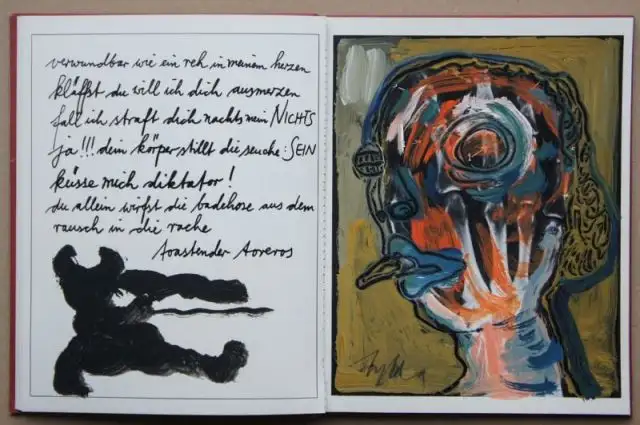 verwundbar wie ein reh in meinem herzen
kläffst du will ich dich ausmerzen
fall ich straft dich nachts mein NICHTS
ja!!! dein körper stillt die seuche: SEIN
küsse mich diktator!
du allein wirfst die badehose aus dem
rausch in die rache
toastender toreros